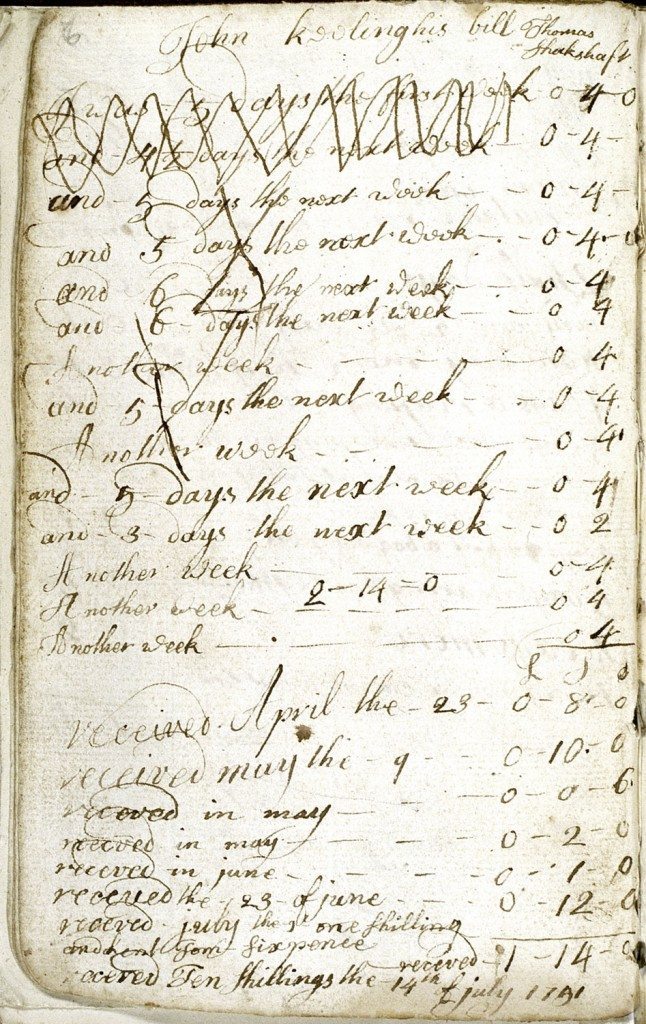 John Keelinghis bill Thomas
Shakshaft
days the first week 0 4 0
and - 4½ days the next week - 0 - 4 -
and - 5 days the next week - - 0 - 4 -
and 5 days the next week - . - 0 - 4 - 0
and 6 days the next week 0 - 4
and - 6 - days the next week - - 0 4
Another week - - - - 0 4
and - 5 - days the next week - - 0 - 4
Another week - - - - 0 - 4
and - 5 - days the next week - - 0 4
and - 3 - days the next week - - 0 2
Another week - - - - 0 - 4
Another week - 2 - 14 = 0 - - 0 4
Another week - - - 0 4
received April the - 23 - 0 - 8 - 0
received may the - 9 - - - 0 - 10 - 0
receved in may - - - 0 - 0 - 6
receved in may - - - - 0 - 2 - 0
receved in june - - - - 0 - 1 - 0
receved the - 23 - of june - - - 0 - 12 - 0
receved july the 1st one shilling
and sixpence
receved - 1 - 14 - 0
receved Ten shillings the - 14th of july